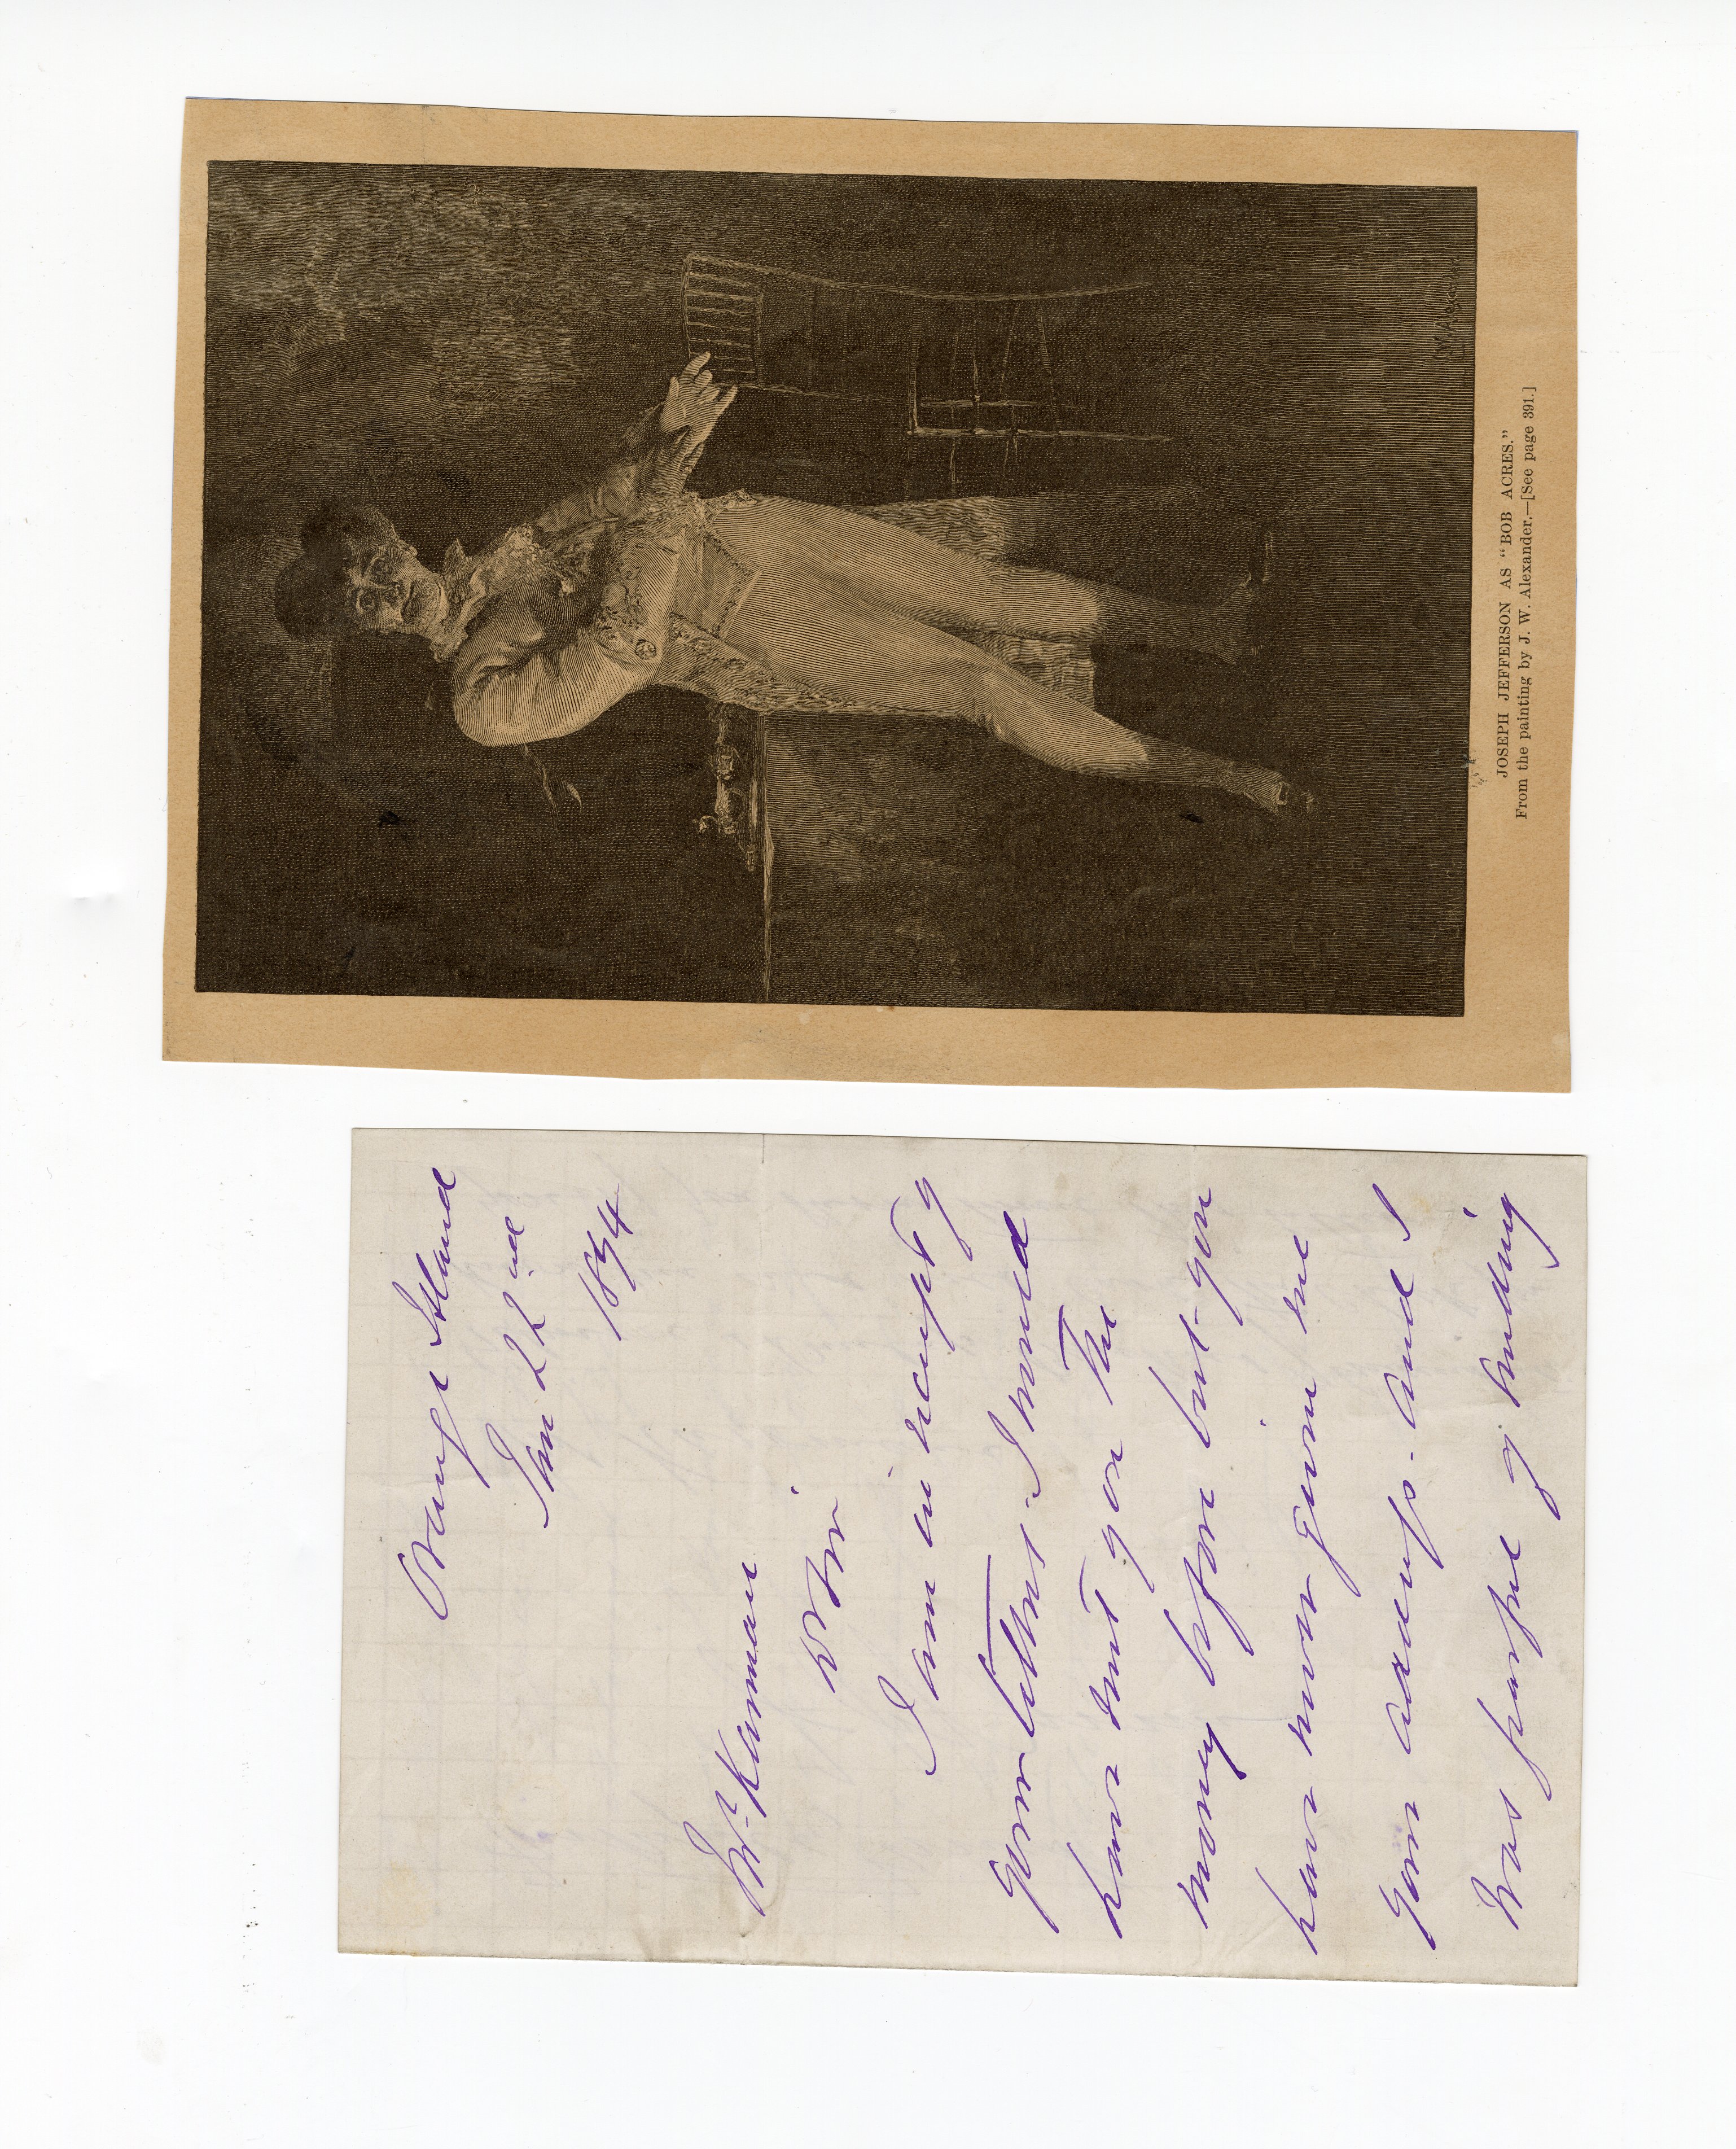 JOSEPH JEFFERSON AS "BOB ACRES."
From the painting by J. W. Alexander.—[See page 391.]
Orange Island
Jan 22nd
1874
Mr Kinman
D Sir
I am in receipt of
your letters. I would
have sent you the
money before but you
have never given me
your address. and I
was fearful of sending